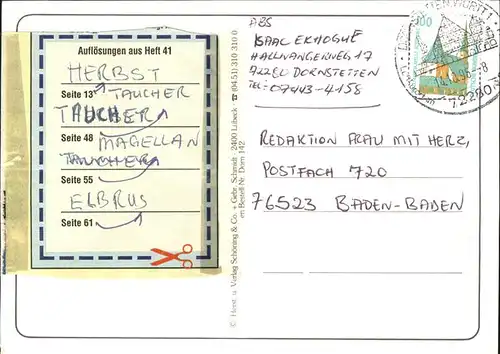 Auflösungen aus Heft 41
HERBST
Seite 13 TAUCHER
TAUCHER
Seite 48 MAGELLAN
TAUCHER
Seite 55
ELBRUS
Seite 61
© Herst. u. Verlag Schöning & Co. + Gebr. Schmidt · 2400 Lübeck ☎ (04 51) 310 310 0
Bestell Nr. Dorn 142
ABS
ISAAC EKHOGUE
HALLWANGERWEG 17
72280 DORNSTETTEN
TEL: 07443-4158
REDAKTION FRAU MIT HERZ,
POSTFACH 720
76523 BADEN-BADEN
72280